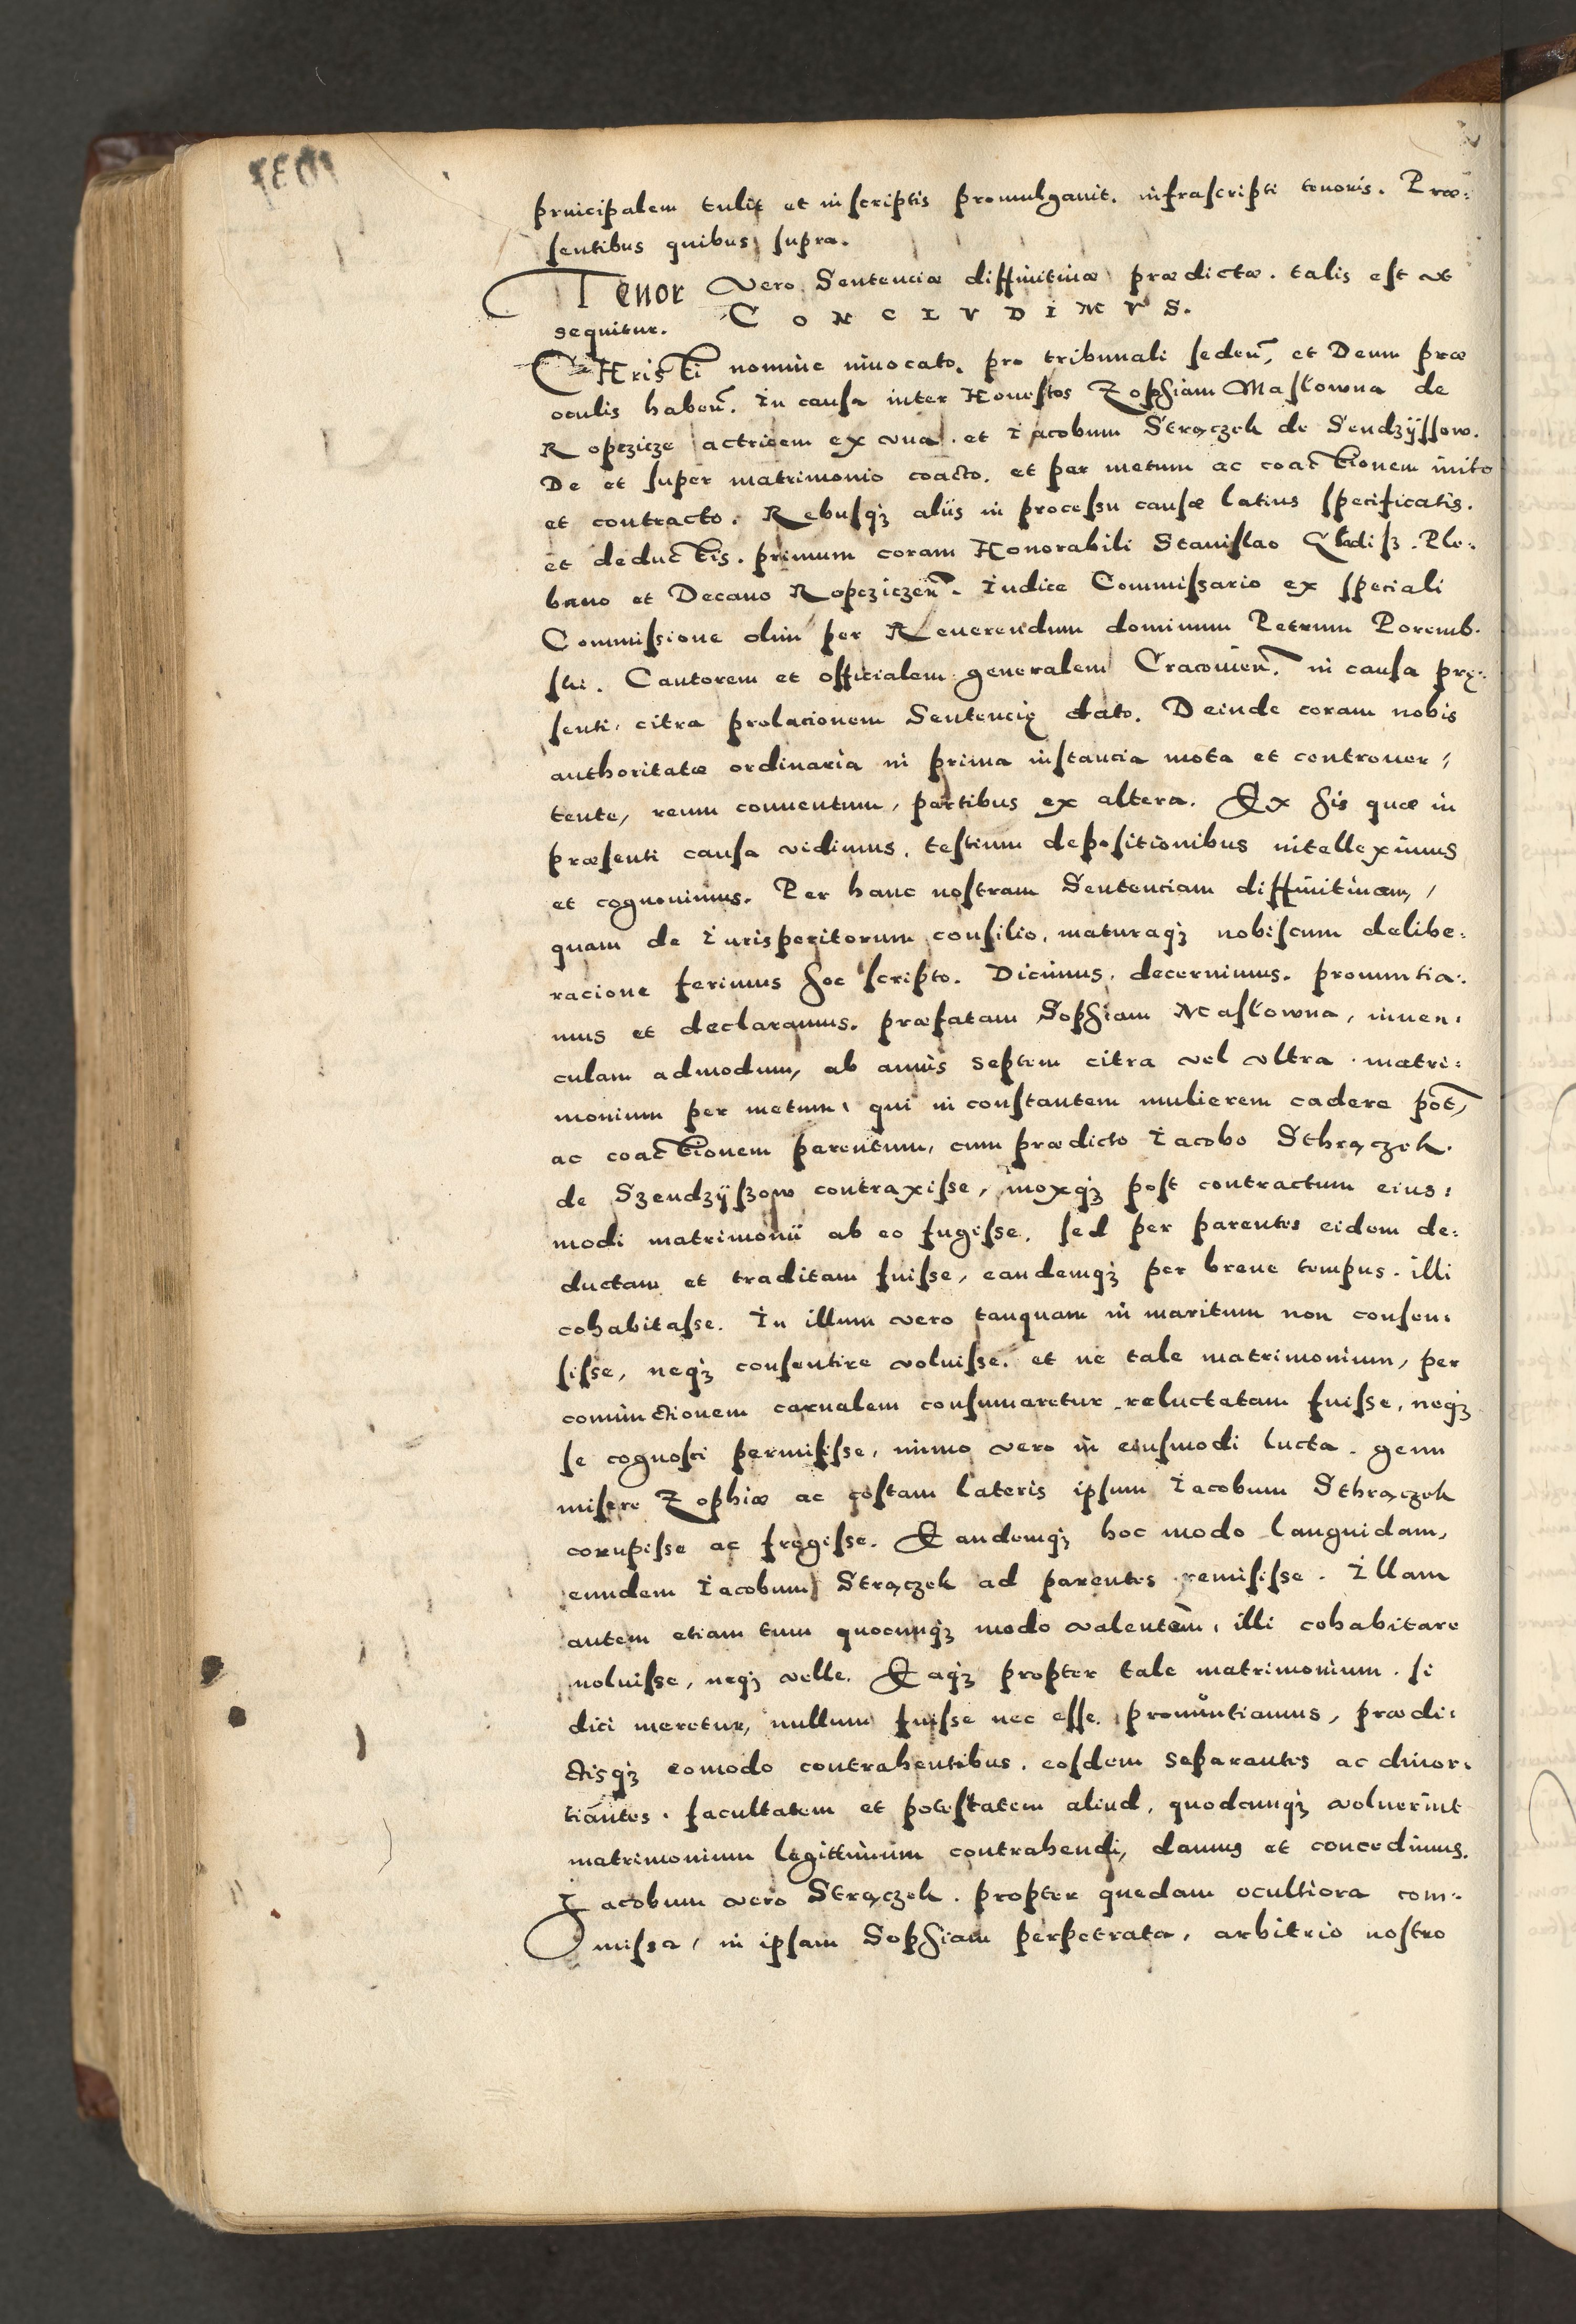 principalem tulit et in scriptis promulgauit. infrascripti tenoris. Præ:
sentibus quibus supra.
Tenor vero Sentenciæ diffinitiuæ prædictæ. talis est vt
sequitur. CONCLVDIMVS.
CHristi nomine inuocato. pro tribunali seden̄, et Deum præ
oculis haben̄. In causa inter Honestos Zophiam Maslowna de
Ropczicze actricem ex vna. et Iacobum Strączek de Sendzÿssow.
De et super matrimonio coacto. et per metum ac coactionem inito
et contracto. Rebusq₃ aliis in processu causæ latius specificatis.
et deductis. primum coram Honorabili Stanislao . Ple:
bano et Decano Ropcziczen̄. Iudice Commissario ex speciali
Commissione olim per Reuerendum dominum Petrum Poremb:
ski. Cantorem et officialem generalem Cracouien̄. in causa prę:
senti. citra prolacionem Sentencię dato. Deinde coram nobis
authoritatæ ordinaria in prima instancia mota et controuer:
tente, reum conuentum, partibus ex altera. Ex his quæ in
præsenti causa vidimus, testium depositionibus intelleximus
et cognouimus. Per hanc nostram Sentenciam diffinitiuam,
quam de Iurisperitorum consilio, maturaq₃ nobiscum delibe:
racione ferimus hoc scripto. Dicimus, decernimus. pronuntia:
mus et declaramus. præfatam Sophiam Maslowna, iuuen:
culam admodum, ab annis septem citra vel vltra. matri:
monium per metum, qui in constantem mulierem cadere pot̄,
ac coactionem parentum, cum prædicto Iacobo Sthrączek.
de Szendzÿszow contraxisse, moxq₃ post contractum eius:
modi matrimonii ab eo fugisse, sed per parentes eidem de:
ductam et traditam fuisse, eandemq₃ per breue tempus. illi
cohabitasse. In illum vero tanquam in maritum non consen:
sisse, neq₃ consentire voluisse. et ne tale matrimonium, per
coniunctionem carnalem consumaretur reluctatam fuisse, neq₃
se cognosci permisisse, immo vero in eiusmodi lucta. genu
misere Zophiæ ac costam lateris ipsum Iacobum Sthrączek
corrupisse ac fregisse. Eandemq₃ hoc modo languidam,
eundem Iacobum Strączek ad parentes remisisse. Illam
autem etiam tum quocunq₃ modo valentem, illi cohabitare
noluisse, neq₃ velle. Eaq₃ propter tale matrimonium. si
dici meretur, nullum fuisse nec esse. pronuntiamus, prædi:
ctisq₃ eomodo contrahentibus. eosdem separantes ac diuor:
tiantes. facultatem et potestatem aliud, quodcunq₃ voluerint
matrimonium legittimum contrahendi, damus et concedimus.
Iacobum vero Strączek. propter quedam ocultiora com:
missa, in ipsam Sophiam perpetrata, arbitrio nostro